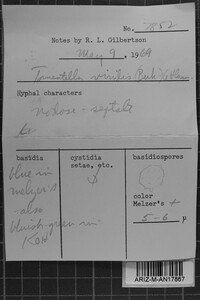 No. 7852
Notes by R. L. Gilbertson
May 9, 1969
Tomentella viridis (Berk.)
Hyphal characters
nodose-septate
basidia
blue in
Melzer's
also
bluish green in
KOH
cystidia
setae, etc.
basidiospores
color
Melzer's +
5-6 μ
ARIZ-M-AN17867